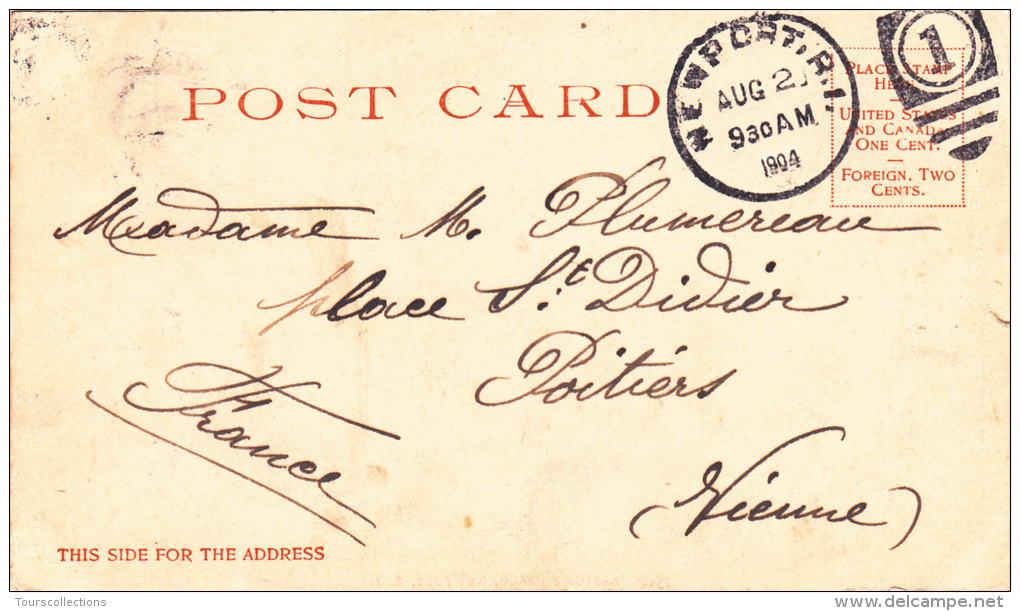 POST CARD
NEWPORT, R.I.
AUG 21
930 AM
1904
1
PLACE STAMP
HERE
UNITED STATES
AND CANADA
ONE CENT.
FOREIGN, TWO
CENTS.
Madame M. Plumereau
place St. Didier
Poitiers
(Vienne)
France
THIS SIDE FOR THE ADDRESS
Tourscollections
delcampe.net